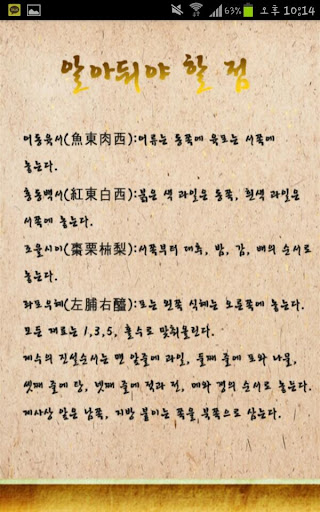 63% 오후 10:14
알아둬야 할 점
어동육서(魚東肉西):어류는 동쪽에 육포는 서쪽에
놓는다.
홍동백서(紅東白西):붉은 색 과일은 동쪽, 흰색 과일은
서쪽에 놓는다.
조율시이(棗栗柿梨):서쪽부터 대추, 밤, 감, 배의 순서로
놓는다.
좌포우혜(左脯右醯):포는 왼쪽 식혜는 오른쪽에 놓는다.
모든 재료는 1,3,5, 홀수로 맞춰올린다.
제수의 진설순서는 맨 앞줄에 과일, 둘째 줄에 포와 나물,
셋째 줄에 탕, 넷째 줄에 적과 전, 메와 갱의 순서로 놓는다.
제사상 앞은 남쪽, 지방 붙이는 쪽을 북쪽으로 삼는다.